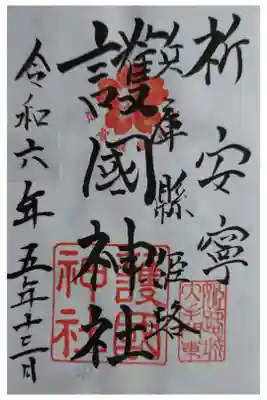 祈安寧
兵庫縣姫路
護國神社
令和六年
五 十三日
護國
神社
姫路城
大手東